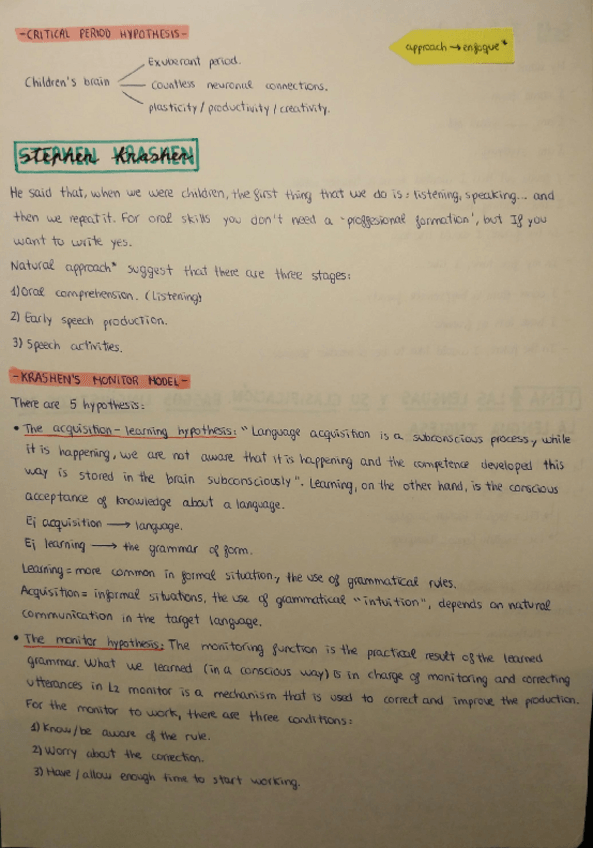 -CRITICAL PERIOD HYPOTHESIS-
approach → enfoque*
Children's brain
Exuberant period.
Countless neuronal connections.
plasticity / productivity / creativity.
Stephen Krashen
He said that, when we were children, the first thing that we do is: listening, speaking... and
then we repeat it. For oral skills you don't need a 'proffesional formation', but If you
want to write yes.
Natural approach* suggest that there are three stages:
1) Oral comprehension. (listening)
2) Early speech production.
3) Speech activities.
-KRASHEN'S MONITOR MODEL-
There are 5 hypothesis:
• The acquisition-learning hypothesis: "Language acquisition is a subconscious process, while
it is happening, we are not aware that it is happening and the competence developed this
way is stored in the brain subconsciously". Learning, on the other hand, is the conscious
acceptance of knowledge about a language.
Ej acquisition → language.
Ej learning → the grammar of form.
Learning = more common in formal situation, the use of grammatical rules.
Acquisition = informal situations, the use of grammatical "intuition", depends on natural
communication in the target language.
• The monitor hypothesis: The monitoring function is the practical result of the learned
grammar. What we learned (in a conscious way) is in charge of monitoring and correcting
utterances in L2 monitor is a mechanism that is used to correct and improve the production.
For the monitor to work, there are three conditions:
1) Know/be aware of the rule.
2) Worry about the correction.
3) Have / allow enough time to start working.